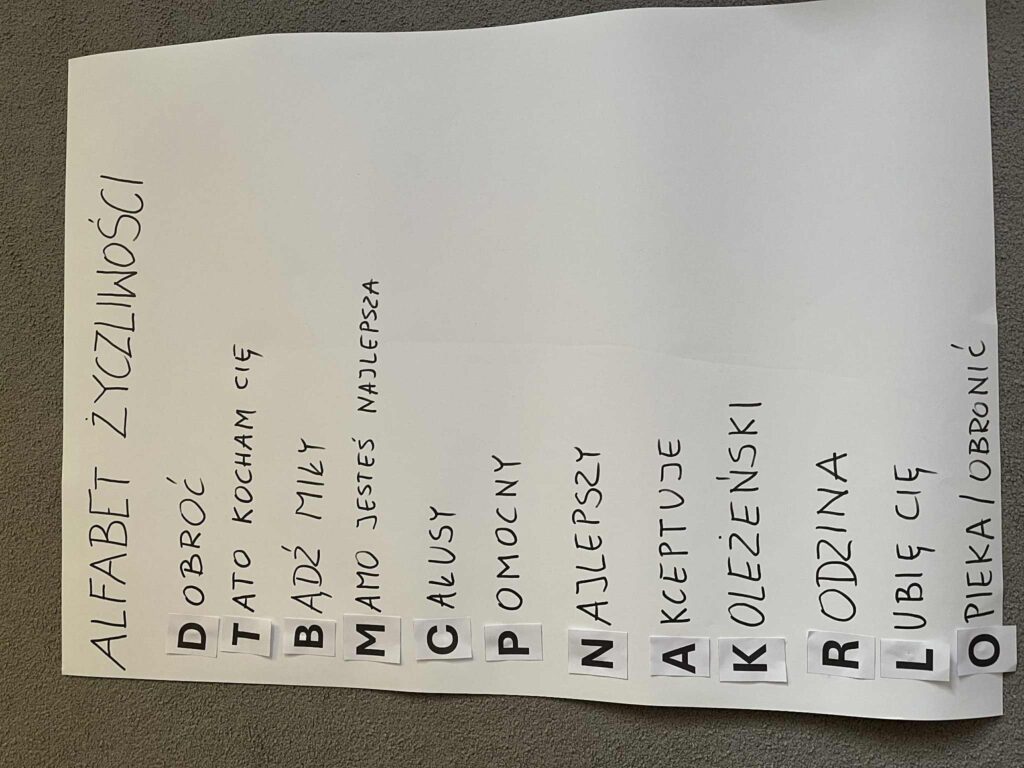 ALFABET ŻYCZLIWOŚCI
DOBROĆ
TATO KOCHAM CIĘ
BĄDŹ MIŁY
MAMO JESTEŚ NAJLEPSZA
CAŁUSY
POMOCNY
NAJLEPSZY
AKCEPTUJE
KOLEŻEŃSKI
RODZINA
LUBIĘ CIĘ
OPIEKA/OBRONIĆ